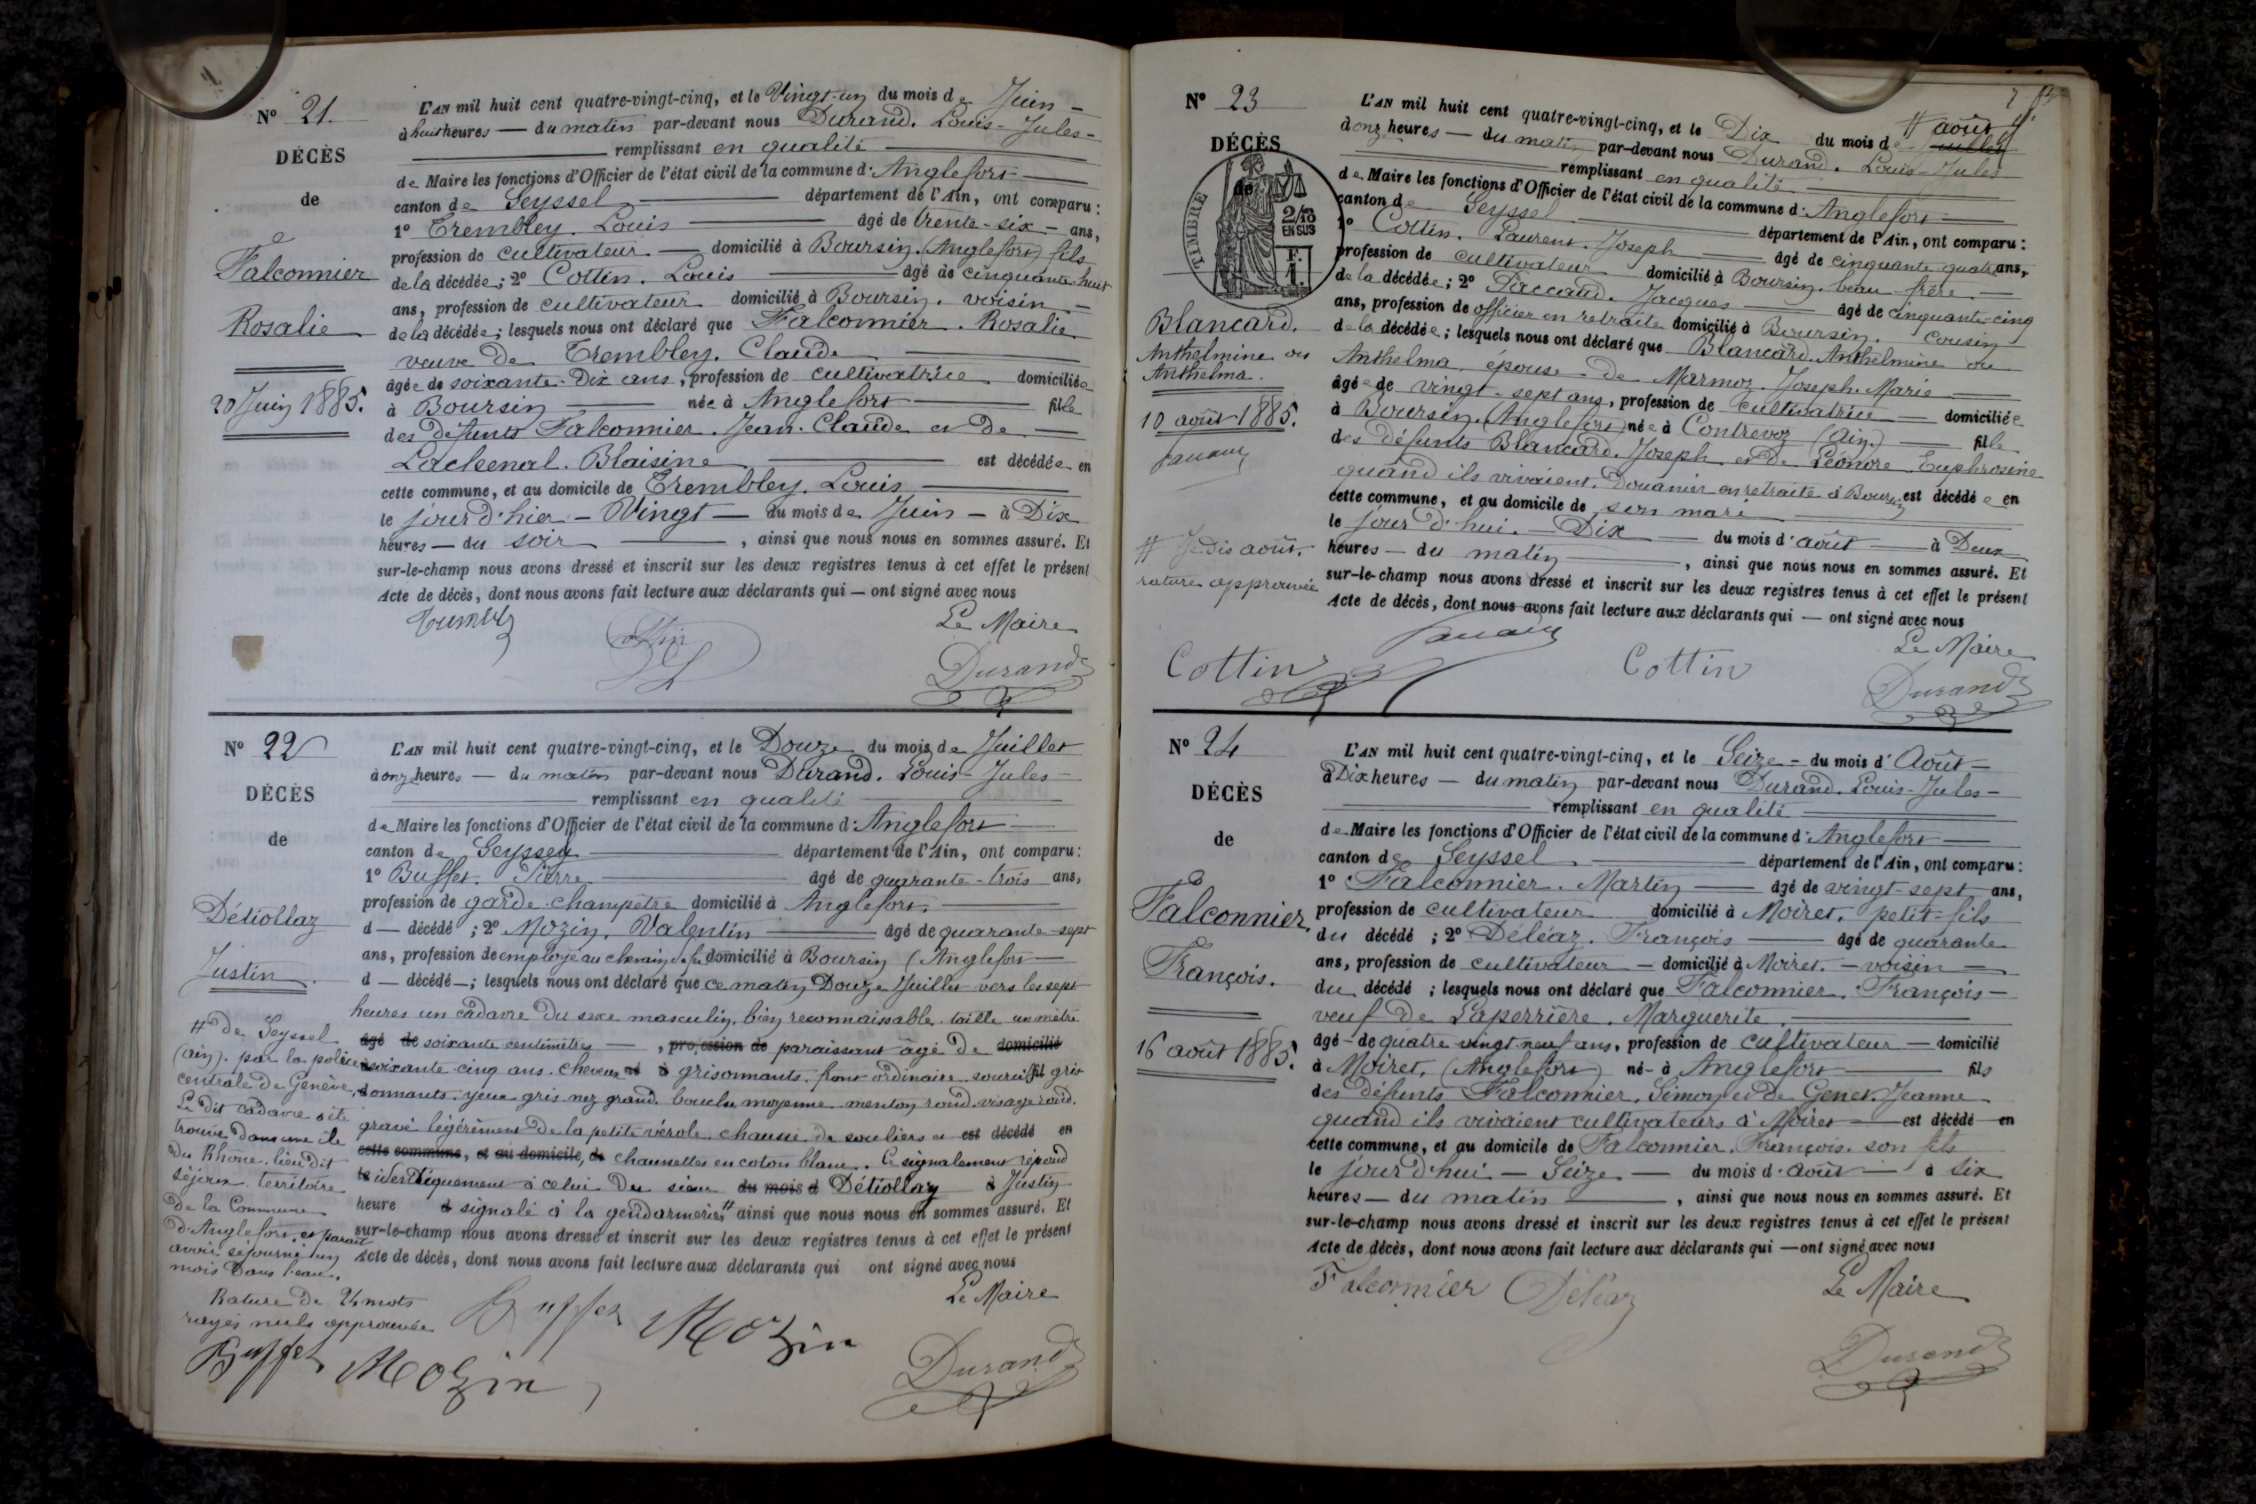 N° 21
DÉCÈS
de
Falconnier
Rosalie
20 Juin 1885.
L'AN mil huit cent quatre-vingt-cinq, et le Vingt-un du mois de Juin
à huit heures du matin par-devant nous Durand. Louis-Jules
remplissant en qualité
de Maire les fonctions d'Officier de l'état civil de la commune d'Anglefort
canton de Seyssel département de l'Ain, ont comparu :
1° Trembley. Louis âgé de trente-six ans,
profession de cultivateur domicilié à Boursin. (Anglefort) fils
de la décédée ; 2° Cottin. Louis âgé de cinquante-huit
ans, profession de cultivateur domicilié à Boursin. voisin
de la décédée ; lesquels nous ont déclaré que Falconnier. Rosalie
veuve de Trembley. Claude
âgée de soixante-Dix ans, profession de cultivatrice domiciliée
à Boursin née à Anglefort fille
des défunts Falconnier. Jean-Claude et de
Lachenal. Blaisine est décédée en
cette commune, et au domicile de Trembley. Louis
le jour d'hier - Vingt du mois de Juin à Dix
heures du soir, ainsi que nous nous en sommes assuré. Et
sur-le-champ nous avons dressé et inscrit sur les deux registres tenus à cet effet le présent
Acte de décès, dont nous avons fait lecture aux déclarants qui ont signé avec nous
Le Maire
Cottin
Durand
N° 22
DÉCÈS
de
Détiollaz
Justin
L'AN mil huit cent quatre-vingt-cinq, et le Douze du mois de Juillet
à onze heures du matin par-devant nous Durand. Louis-Jules
remplissant en qualité
de Maire les fonctions d'Officier de l'état civil de la commune d'Anglefort
canton de Seyssel département de l'Ain, ont comparu :
1° Buffet. Pierre âgé de quarante-trois ans,
profession de garde-champêtre domicilié à Anglefort.
d décédé ; 2° Mozin. Valentin âgé de quarante-sept
ans, profession de employé au chemin de fer domicilié à Boursin (Anglefort
d décédé ; lesquels nous ont déclaré que ce matin Douze Juillet vers les sept
heures un cadavre du sexe masculin, bien reconnaissable. taille un mètre
âgé de soixante centimètres, profession de paraissant âgé de domicilié
soixante-cinq ans. cheveux né à grisonnants. front ordinaire. sourcils fil gris
onnants. yeux gris. nez grand. bouche moyenne. menton rond. visage rond.
gravé légèrement de la petite vérole. chaussé de souliers et est décédé en
cette commune, et au domicile, de chaussettes en coton blanc. Ce signalement répond
le identiquement à celui du sieur du mois d Détiollaz à Justin
heure d signalé à la gendarmerie # ainsi que nous nous en sommes assuré. Et
sur-le-champ nous avons dressé et inscrit sur les deux registres tenus à cet effet le présent
Acte de décès, dont nous avons fait lecture aux déclarants qui ont signé avec nous
# de Seyssel
(Ain). par la police
centrale de Genève,
Le dit cadavre a été
trouvé dans une île
du Rhône. lieu dit
territoire
de la Commune
d'Anglefort. et parait
avoir séjourné un
mois dans l'eau.
Rature de 24 mots
rayés nuls approuvée
Buffet Mozin
Buffet Mozin
Le Maire
Durand
N° 23
DÉCÈS
de
TIMBRE
2/10 EN SUS
F. 1.
Blancard.
Anthelmine ou
Anthelma.
10 août 1885.
L'AN mil huit cent quatre-vingt-cinq, et le Dix du mois de # août juillet
à onze heures du matin par-devant nous Durand. Louis-Jules
remplissant en qualité
de Maire les fonctions d'Officier de l'état civil de la commune d'Anglefort
canton de Seyssel département de l'Ain, ont comparu :
1° Cottin. Laurent. Joseph âgé de cinquante-quatre ans,
profession de cultivateur domicilié à Boursin. beau-frère
de la décédée ; 2° Paccaud. Jacques âgé de cinquante-cinq
ans, profession de officier en retraite domicilié à Boursin. Cousin
de la décédée ; lesquels nous ont déclaré que Blancard. Anthelmine ou
Anthelma épouse de Marmoz. Joseph. Marie
âgée de vingt-sept ans, profession de Cultivatrice domiciliée
à Boursin. (Anglefort) née à Contrevoz (Ain.) fille
des défunts Blancard. Joseph et de Léonore Euphrosine
quand ils vivaient. Douanier en retraite à Boursin est décédée en
cette commune, et au domicile de son mari
le jour d'hui. Dix du mois d'août à Deux
heures du matin, ainsi que nous nous en sommes assuré. Et
sur-le-champ nous avons dressé et inscrit sur les deux registres tenus à cet effet le présent
Acte de décès, dont nous avons fait lecture aux déclarants qui ont signé avec nous
# Je dis août.
rature approuvée
Cottin
Cottin
Le Maire
Durand
N° 24
DÉCÈS
de
Falconnier
François.
16 août 1885.
L'AN mil huit cent quatre-vingt-cinq, et le Seize du mois d'Août
à Dix heures du matin par-devant nous Durand. Louis-Jules
remplissant en qualité
de Maire les fonctions d'Officier de l'état civil de la commune d'Anglefort
canton de Seyssel département de l'Ain, ont comparu :
1° Falconnier. Martin âgé de vingt-sept ans,
profession de cultivateur domicilié à Moiret. petit-fils
du décédé ; 2° Déléaz. François âgé de quarante
ans, profession de cultivateur domicilié à Moiret. voisin
du décédé ; lesquels nous ont déclaré que Falconnier. François
veuf de Laperrière. Marguerite.
âgé de quatre-vingt-neuf ans, profession de cultivateur domicilié
à Moiret, (Anglefort) né à Anglefort fils
des défunts Falconnier. Simon et de Genet. Jeanne
quand ils vivaient cultivateurs à Moiret est décédé en
cette commune, et au domicile de Falconnier. François. son fils
le jour d'hui Seize du mois d'août à six
heures du matin, ainsi que nous nous en sommes assuré. Et
sur-le-champ nous avons dressé et inscrit sur les deux registres tenus à cet effet le présent
Acte de décès, dont nous avons fait lecture aux déclarants qui ont signé avec nous
Falconnier Déléaz
Le Maire
Durand